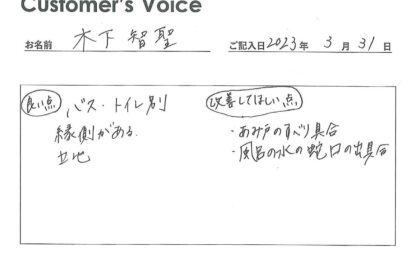 Customer's Voice
お名前 木下 智聖 ご記入日 2023年 3月 31日
良い点
バス・トイレ別
縁側がある
立地
改善してほしい点
・あみ戸のすべり具合
・風呂の水の蛇口の出具合